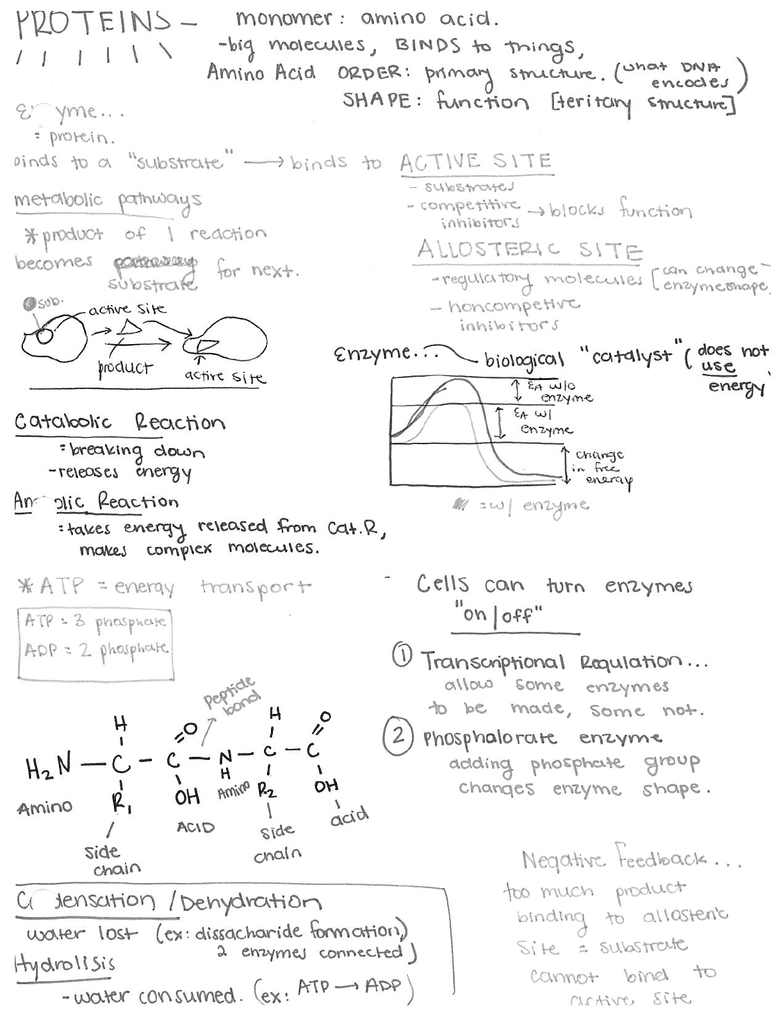 PROTEINS –
monomer: amino acid.
-big molecules, BINDS to things,
Amino Acid ORDER: primary structure. (what DNA encodes)
SHAPE: function [teritary structure]
yme...
= protein.
binds to a "substrate" → binds to ACTIVE SITE
- substrates
- competitive inhibitors → blocks function
metabolic pathways
* product of 1 reaction
becomes substrate for next.
ALLOSTERIC SITE
-regulatory molecules [can change enzyme shape.
- noncompetive
inhibitors
sub.
active site
product
active site
Enzyme... biological "catalyst" (does not use energy)
EA w/o enzyme
EA w/ enzyme
change in free energy
= w/ enzyme
Catabolic Reaction
=breaking down
-releases energy
An olic Reaction
=takes energy released from Cat.R,
makes complex molecules.
* ATP = energy transport
ATP = 3 phosphate
ADP = 2 phosphate
- Cells can turn enzymes
"on/off"
① Transcriptional Regulation...
allow some enzymes
to be made, some not.
② Phosphalorate enzyme
adding phosphate group
changes enzyme shape.
Peptide bond
H O H O
H2N – C – C – N – C – C
R1 OH H R2 OH
Amino ACID Amino acid
side chain
side chain
C densation /Dehydration
water lost (ex: dissacharide formation,
2 enzymes connected)
Hydrolisis
-water consumed. (ex: ATP → ADP)
Negative Feedback...
too much product
binding to
site = substrate
cannot bind to
active site